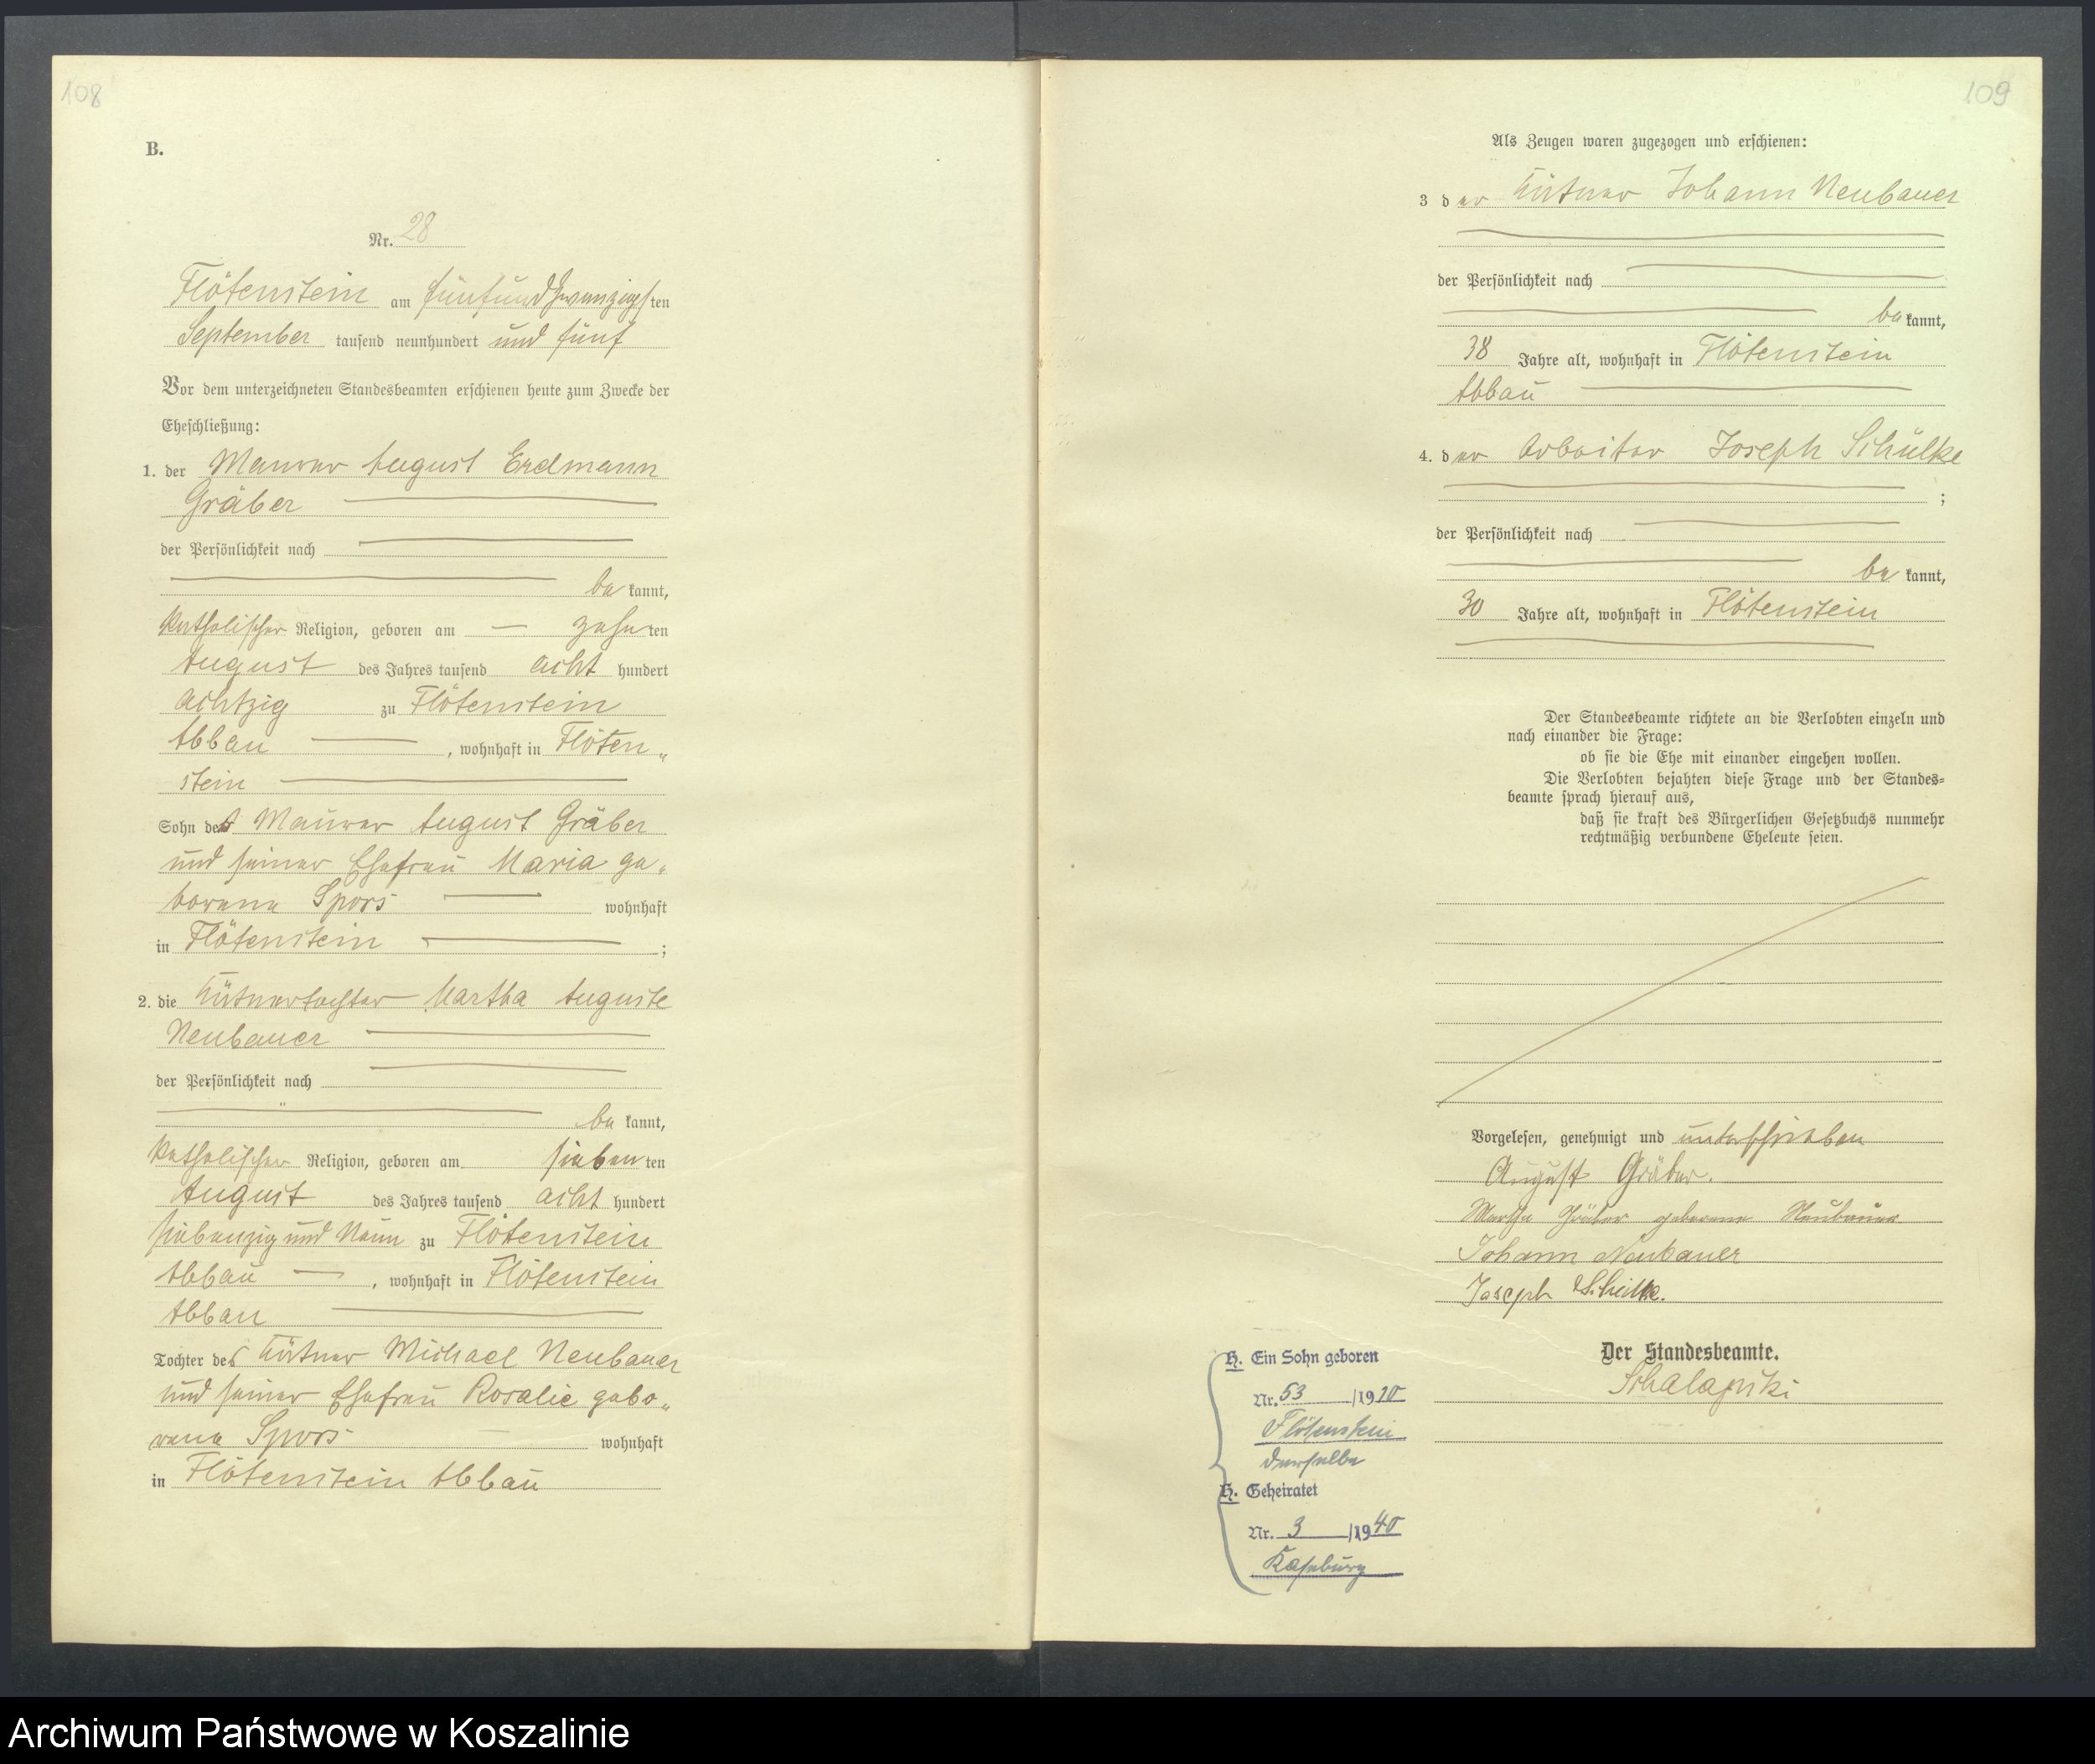 108
B.
Nr. 28
Flötenstein am fünfundzwanzigsten
September tausend neunhundert und fünf
Vor dem unterzeichneten Standesbeamten erschienen heute zum Zwecke der
Eheschließung:
1. der Maurer August Erdmann
Gräber
der Persönlichkeit nach
be kannt,
katholischer Religion, geboren am zehn ten
August des Jahres tausend acht hundert
achtzig zu Flötenstein
Abbau, wohnhaft in Flöten„
stein
Sohn des Maurer August Gräber
und seiner Ehefrau Maria ge„
borene Spors wohnhaft
in Flötenstein ;
2. die Kätnertochter Martha Auguste
Neubauer
der Persönlichkeit nach
be kannt,
katholischer Religion, geboren am sieben ten
August des Jahres tausend acht hundert
siebenzig und Neun zu Flötenstein
Abbau, wohnhaft in Flötenstein
Abbau
Tochter des Kätner Michael Neubauer
und seiner Ehefrau Rosalie gebo„
rene Spors wohnhaft
in Flötenstein Abbau
109
Als Zeugen waren zugezogen und erschienen:
3 der Kätner Johann Neubauer
der Persönlichkeit nach
be kannt,
38 Jahre alt, wohnhaft in Flötenstein
Abbau
4. der Arbeiter Joseph Schülke
;
der Persönlichkeit nach
be kannt,
30 Jahre alt, wohnhaft in Flötenstein
Der Standesbeamte richtete an die Verlobten einzeln und
nach einander die Frage:
ob sie die Ehe mit einander eingehen wollen.
Die Verlobten bejahten diese Frage und der Standes=
beamte sprach hierauf aus,
daß sie kraft des Bürgerlichen Gesetzbuchs nunmehr
rechtmäßig verbundene Eheleute seien.
Vorgelesen, genehmigt und unterschrieben
August Gräber.
Martha Gräber geborene Neubauer
Johann Neubauer
Joseph Schülke.
Der Standesbeamte.
Schalapski
H. Ein Sohn geboren
Nr. 53 /1910
Flötenstein
derselbe
H. Geheiratet
Nr. 3 /1940
Kaseburg
Archiwum Państwowe w Koszalinie